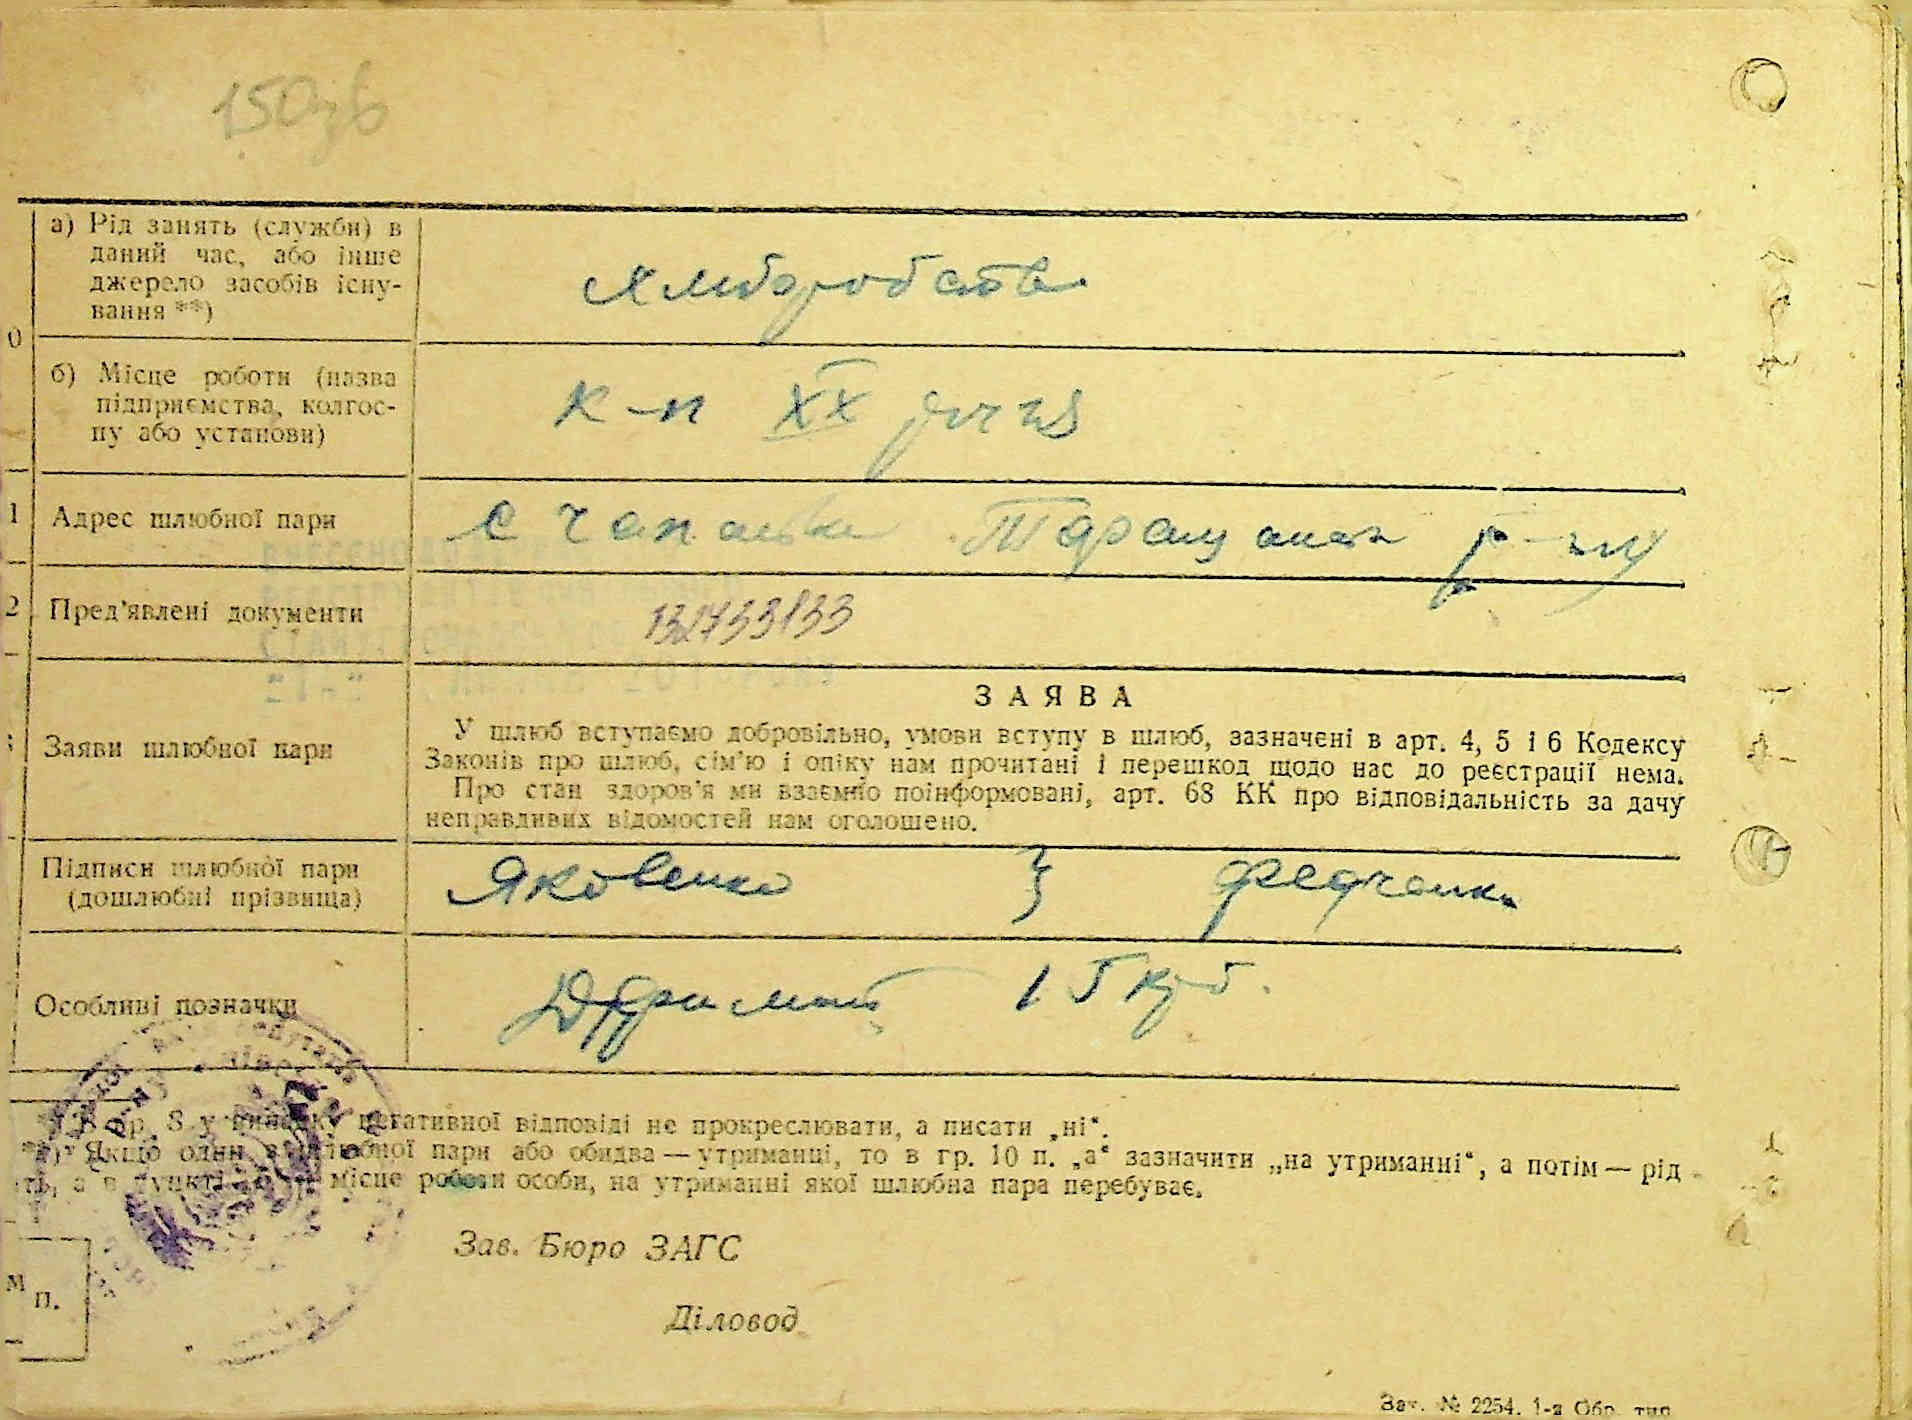 150зв
а) Рід занять (служби) в
даний час, або інше
джерело засобів існу-
вання **)
хліборобство
0
б) Місце роботи (назва
підприємства, колгос-
пу або установи)
к-п XX річчя
1
Адрес шлюбної пари
с Чапаєвка Таращанськ р-ну
2
Пред'явлені документи
132733133
Заяви шлюбної пари
ЗАЯВА
У шлюб вступаємо добровільно, умови вступу в шлюб, зазначені в арт. 4, 5 і 6 Кодексу
Законів про шлюб, сім'ю і опіку нам прочитані і перешкод щодо нас до реєстрації нема.
Про стан здоров'я ми взаємно поінформовані, арт. 68 КК про відповідальність за дачу
неправдивих відомостей нам оголошено.
Підписи шлюбної пари
(дошлюбні прізвища)
Яковенко } Федченко
Особливі позначки
15 крб.
гр. 8 у випадку негативної відповіді не прокреслювати, а писати „ні“.
**) Якщо один з шлюбної пари або обидва — утриманці, то в гр. 10 п. „а“ зазначити „на утриманні“, а потім — рід
ть, а в пункті місце роботи особи, на утриманні якої шлюбна пара перебуває.
Зав. Бюро ЗАГС
М
П.
Діловод
Зак. № 2254. 1-а Обр. тип